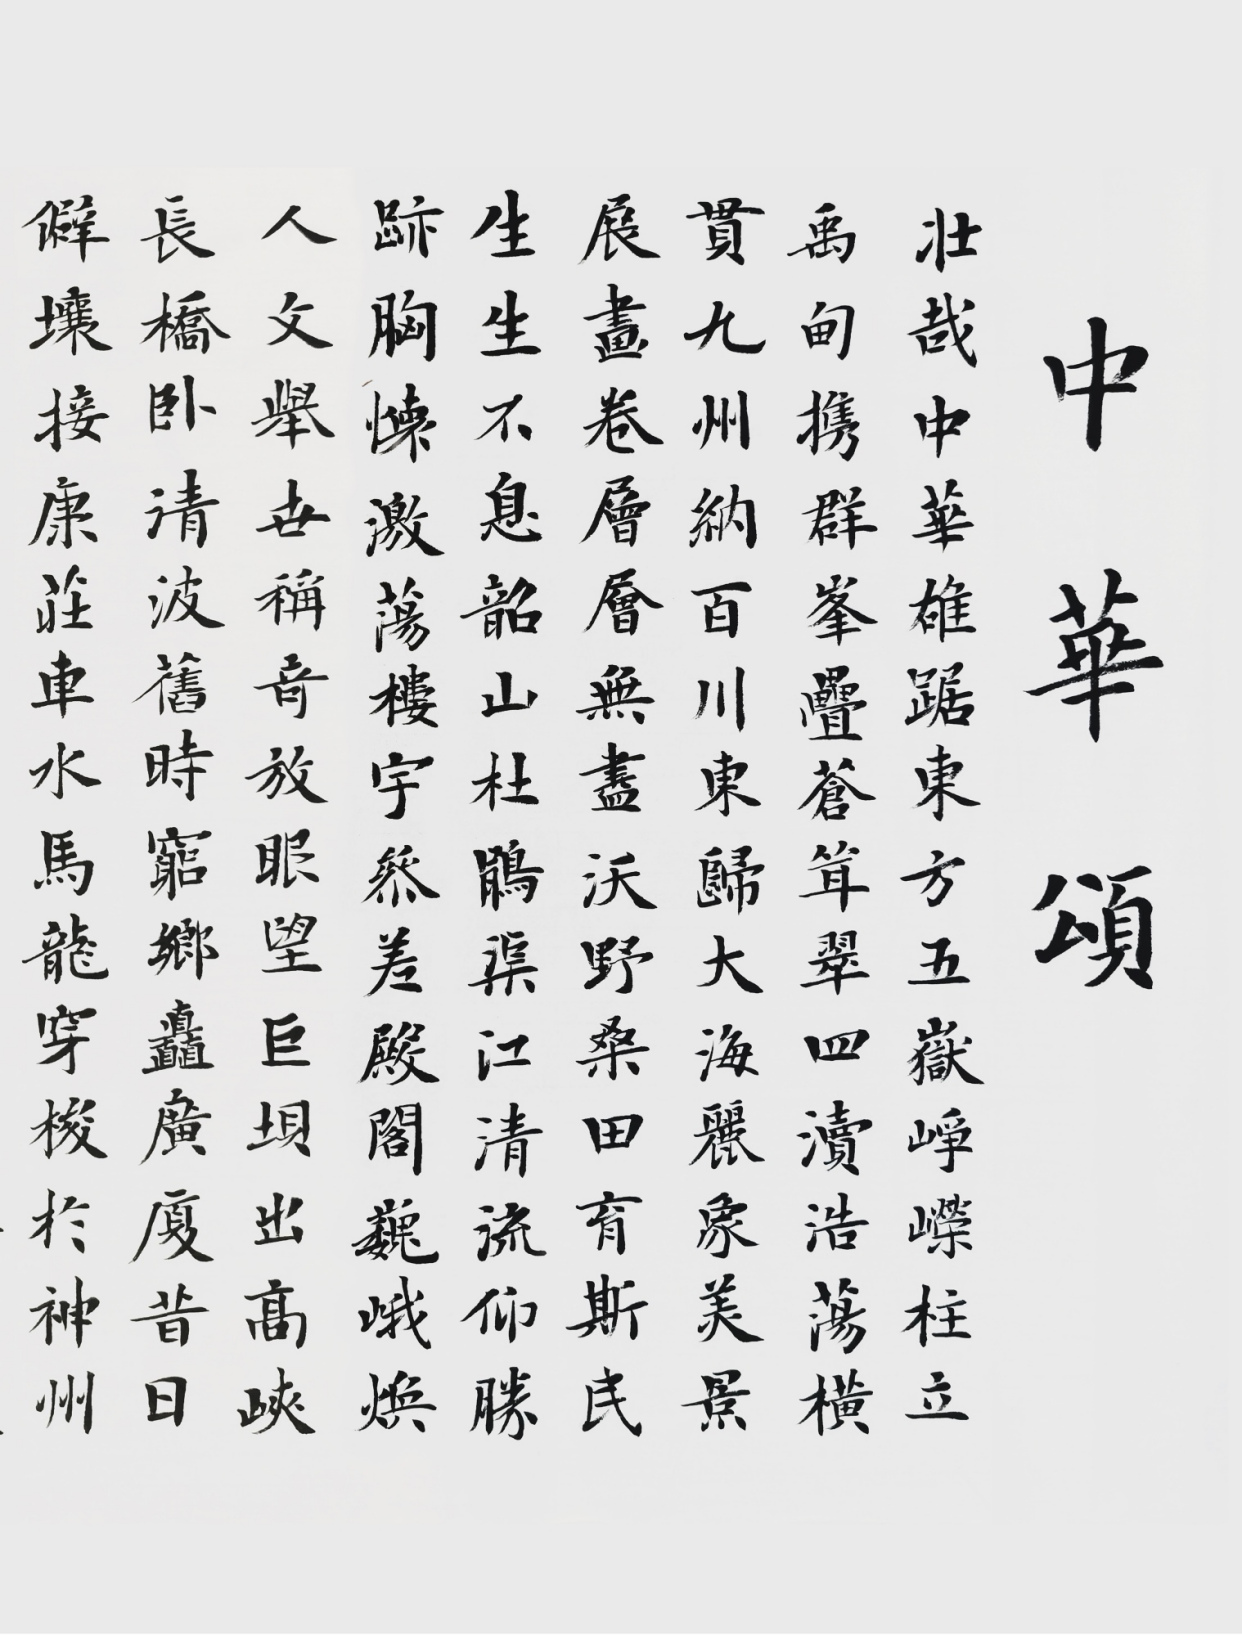 中華頌
壯哉中華雄踞東方五嶽崢嶸柱立
禹甸携群峯疊蒼茸翠四瀆浩蕩橫
貫九州納百川東歸大海麗象美景
展畫卷層層無盡沃野桑田育斯民
生生不息韶山杜鵑渠江清流仰勝
跡胸懷激蕩樓宇叅差殿閣巍峨煥
人文舉世稱奇放眼望巨坝出高峽
長橋卧清波舊時窮鄉矗廣廈昔日
僻壤接康莊車水馬龍穿梭於神州